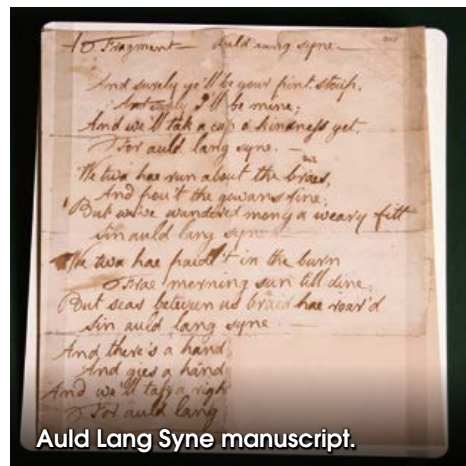 Fragment — Auld lang syne —
And surely ye'll be your pint stoup,
And surely I'll be mine;
And we'll tak a cup o' kindness yet,
For auld lang syne. —
We twa hae run about the braes,
And pou't the gowans fine;
But we've wandered mony a weary fitt
Sin auld lang syne
We twa hae paidl't in the burn
Frae morning sun till dine;
But seas between us braid hae roar'd
Sin auld lang syne
And there's a hand
And gies a hand
And we'll tak a right
For auld lang
Auld Lang Syne manuscript.